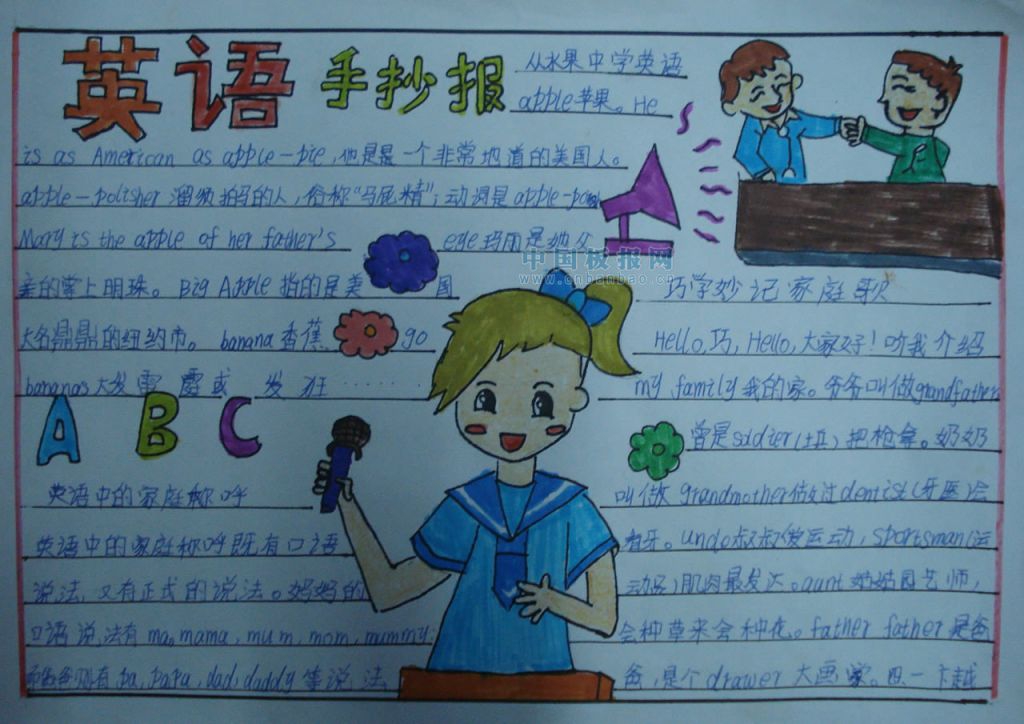 英语 手抄报
从水果中学英语
apple 苹果。He
is as American as apple-pie, 他是一个非常地道的美国人。
apple-polisher 溜须拍马的人，俗称"马屁精"；动词是 apple-
Mary is the apple of her father's eye 玛丽是她父
亲的掌上明珠。Big Apple 指的是美国
大名鼎鼎的纽约市。banana 香蕉 go
bananas 大发雷霆或 发狂 ······
A B C
英语中的家庭称呼
英语中的家庭称呼既有口语
说法，又有正式的说法。妈妈的
口语说法有 ma, mama, mum, mom, mummy
爸爸则有 pa, papa, dad, daddy 等说法
中国板报网
www.cnbanbao.cn
巧学妙记家庭歌
Hello, 巧, Hello, 大家好！听我介绍
my family 我的家。爷爷叫做 grandfather
曾是 soldier (士兵) 把枪拿。奶奶
叫做 grandmother 做过 dentist (牙医) 会
看牙。uncle 叔叔做运动，sportsman (运
动员) 肌肉最发达。aunt 姑姑园艺师，
会种草来会种花。father father 是爸
爸，是个 drawer 大画家。四一下越